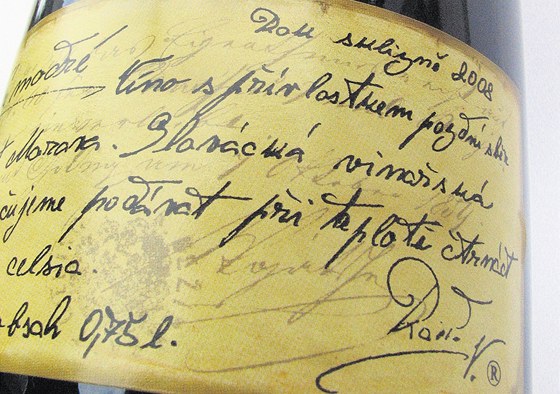 Dom sklizně 2008
modré víno s přívlastkem pozdní sběr
Morava. Slovácká vinařská
čujeme podávat při teplotě čtrnáct
celsia.
obsah 0,75 l.
®